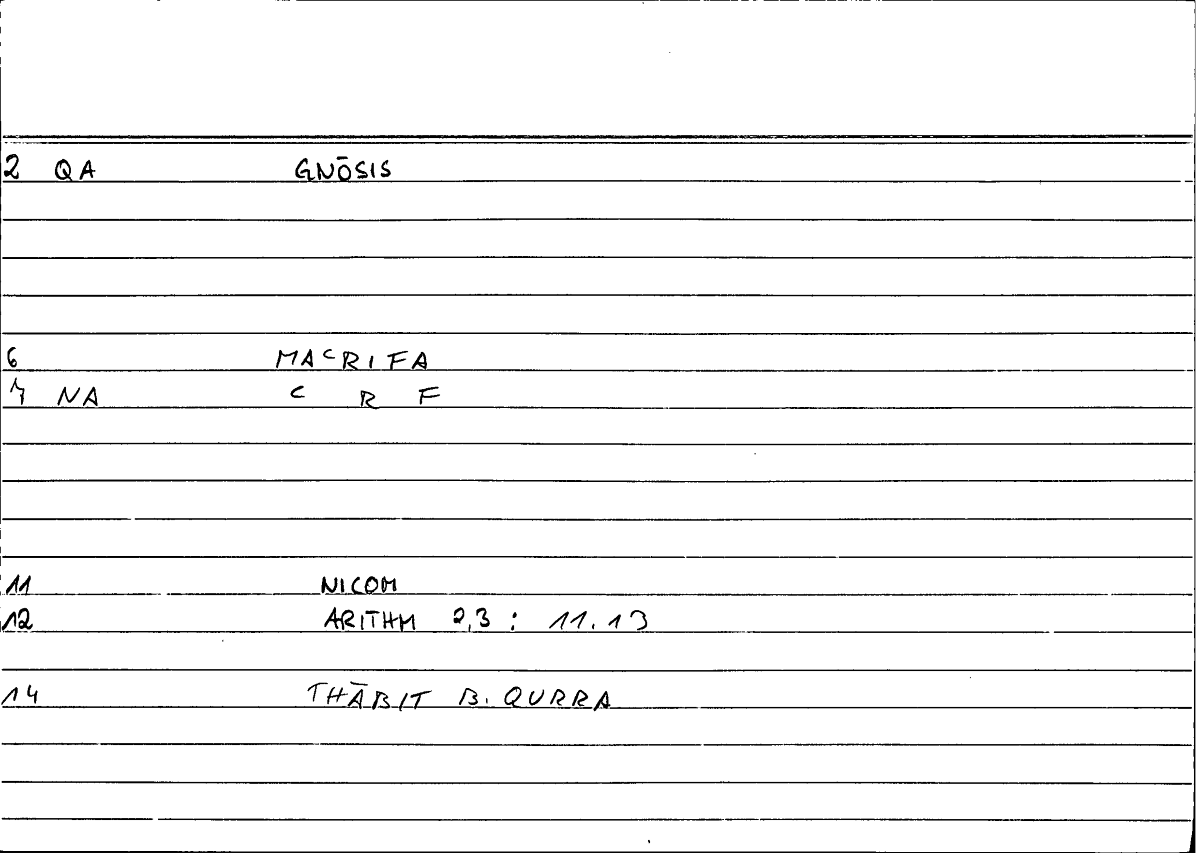 2 QA GNŌSIS
6 MAᶜRIFA
7 NA ᶜ R F
11 NICOM
12 ARITHM 2,3 : 11.13
14 THĀBIT B. QURRA